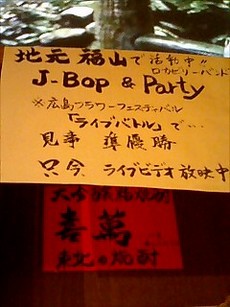 地元福山で活動中!!
ロカビリーバンド
J-Bop & Party
※広島フラワーフェスティバル
「ライブバトル」で…
見事 準優勝
只今 ライブビデオ放映中
喜萬